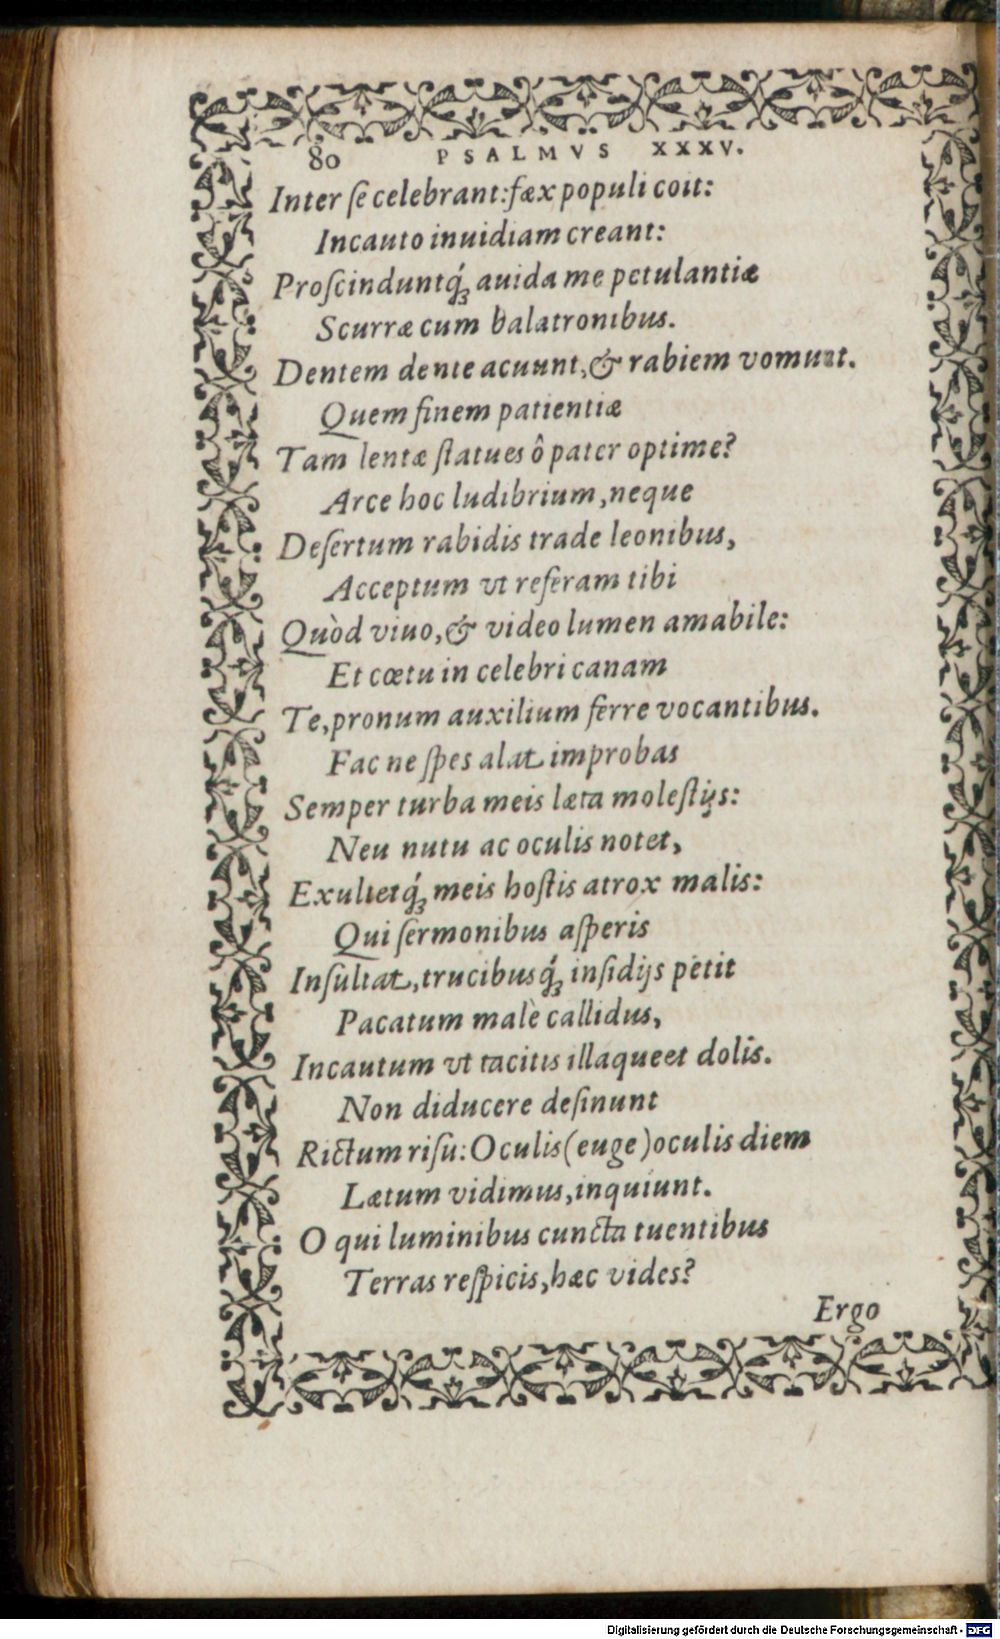 80 PSALMVS XXXV.
Inter ſe celebrant: fæx populi coit:
Incauto inuidiam creant:
Proſcinduntq́ꝫ auida me petulantiæ
Scurræ cum balatronibus.
Dentem dente acuunt, & rabiem vomunt.
Quem finem patientiæ
Tam lentæ ſtatues ô pater optime?
Arce hoc ludibrium, neque
Deſertum rabidis trade leonibus,
Acceptum vt referam tibi
Quòd viuo, & video lumen amabile:
Et cœtu in celebri canam
Te, pronum auxilium ferre vocantibus.
Fac ne ſpes alat improbas
Semper turba meis læta moleſtijs:
Neu nutu ac oculis notet,
Exultetq́ꝫ meis hoſtis atrox malis:
Qui ſermonibus aſperis
Inſultat, trucibusq́ꝫ inſidijs petit
Pacatum malè callidus,
Incautum vt tacitis illaqueet dolis.
Non diducere deſinunt
Rictum riſu: Oculis (euge) oculis diem
Lætum vidimus, inquiunt.
O qui luminibus cuncta tuentibus
Terras reſpicis, hæc vides?
Ergo
Digitalisierung gefördert durch die Deutsche Forschungsgemeinschaft - DFG